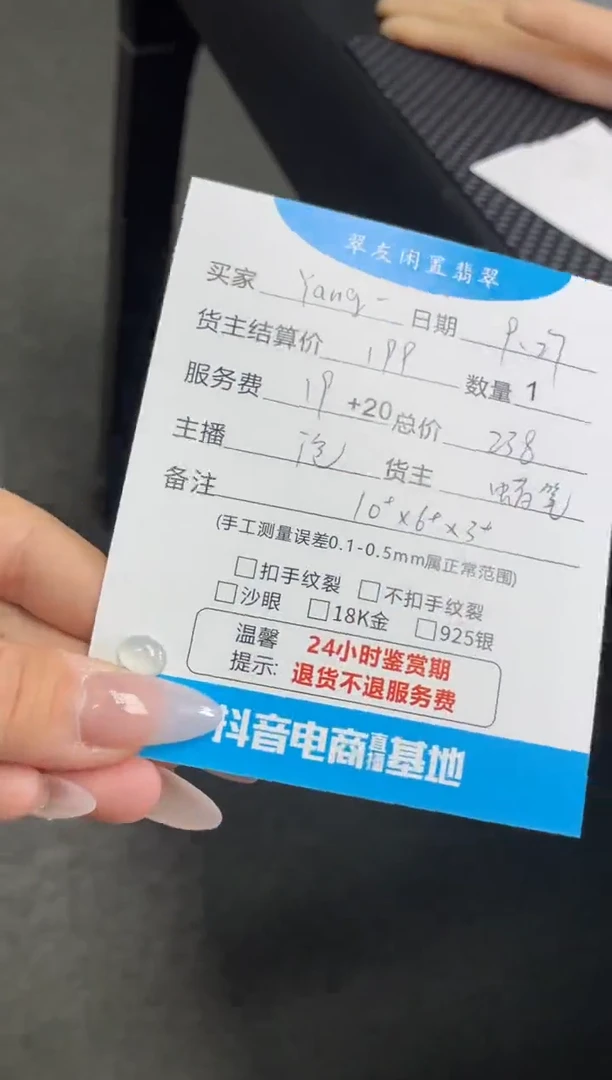 翠友闲置翡翠
买家 Yang 日期 9.27
货主结算价 199 数量 1
服务费 19 +20 总价 238
主播 货主
备注 10⁺×6⁺×3⁺
(手工测量误差0.1-0.5mm属正常范围)
□扣手纹裂 □不扣手纹裂
□沙眼 □18K金 □925银
温馨提示: 24小时鉴赏期
退货不退服务费
抖音电商直播基地